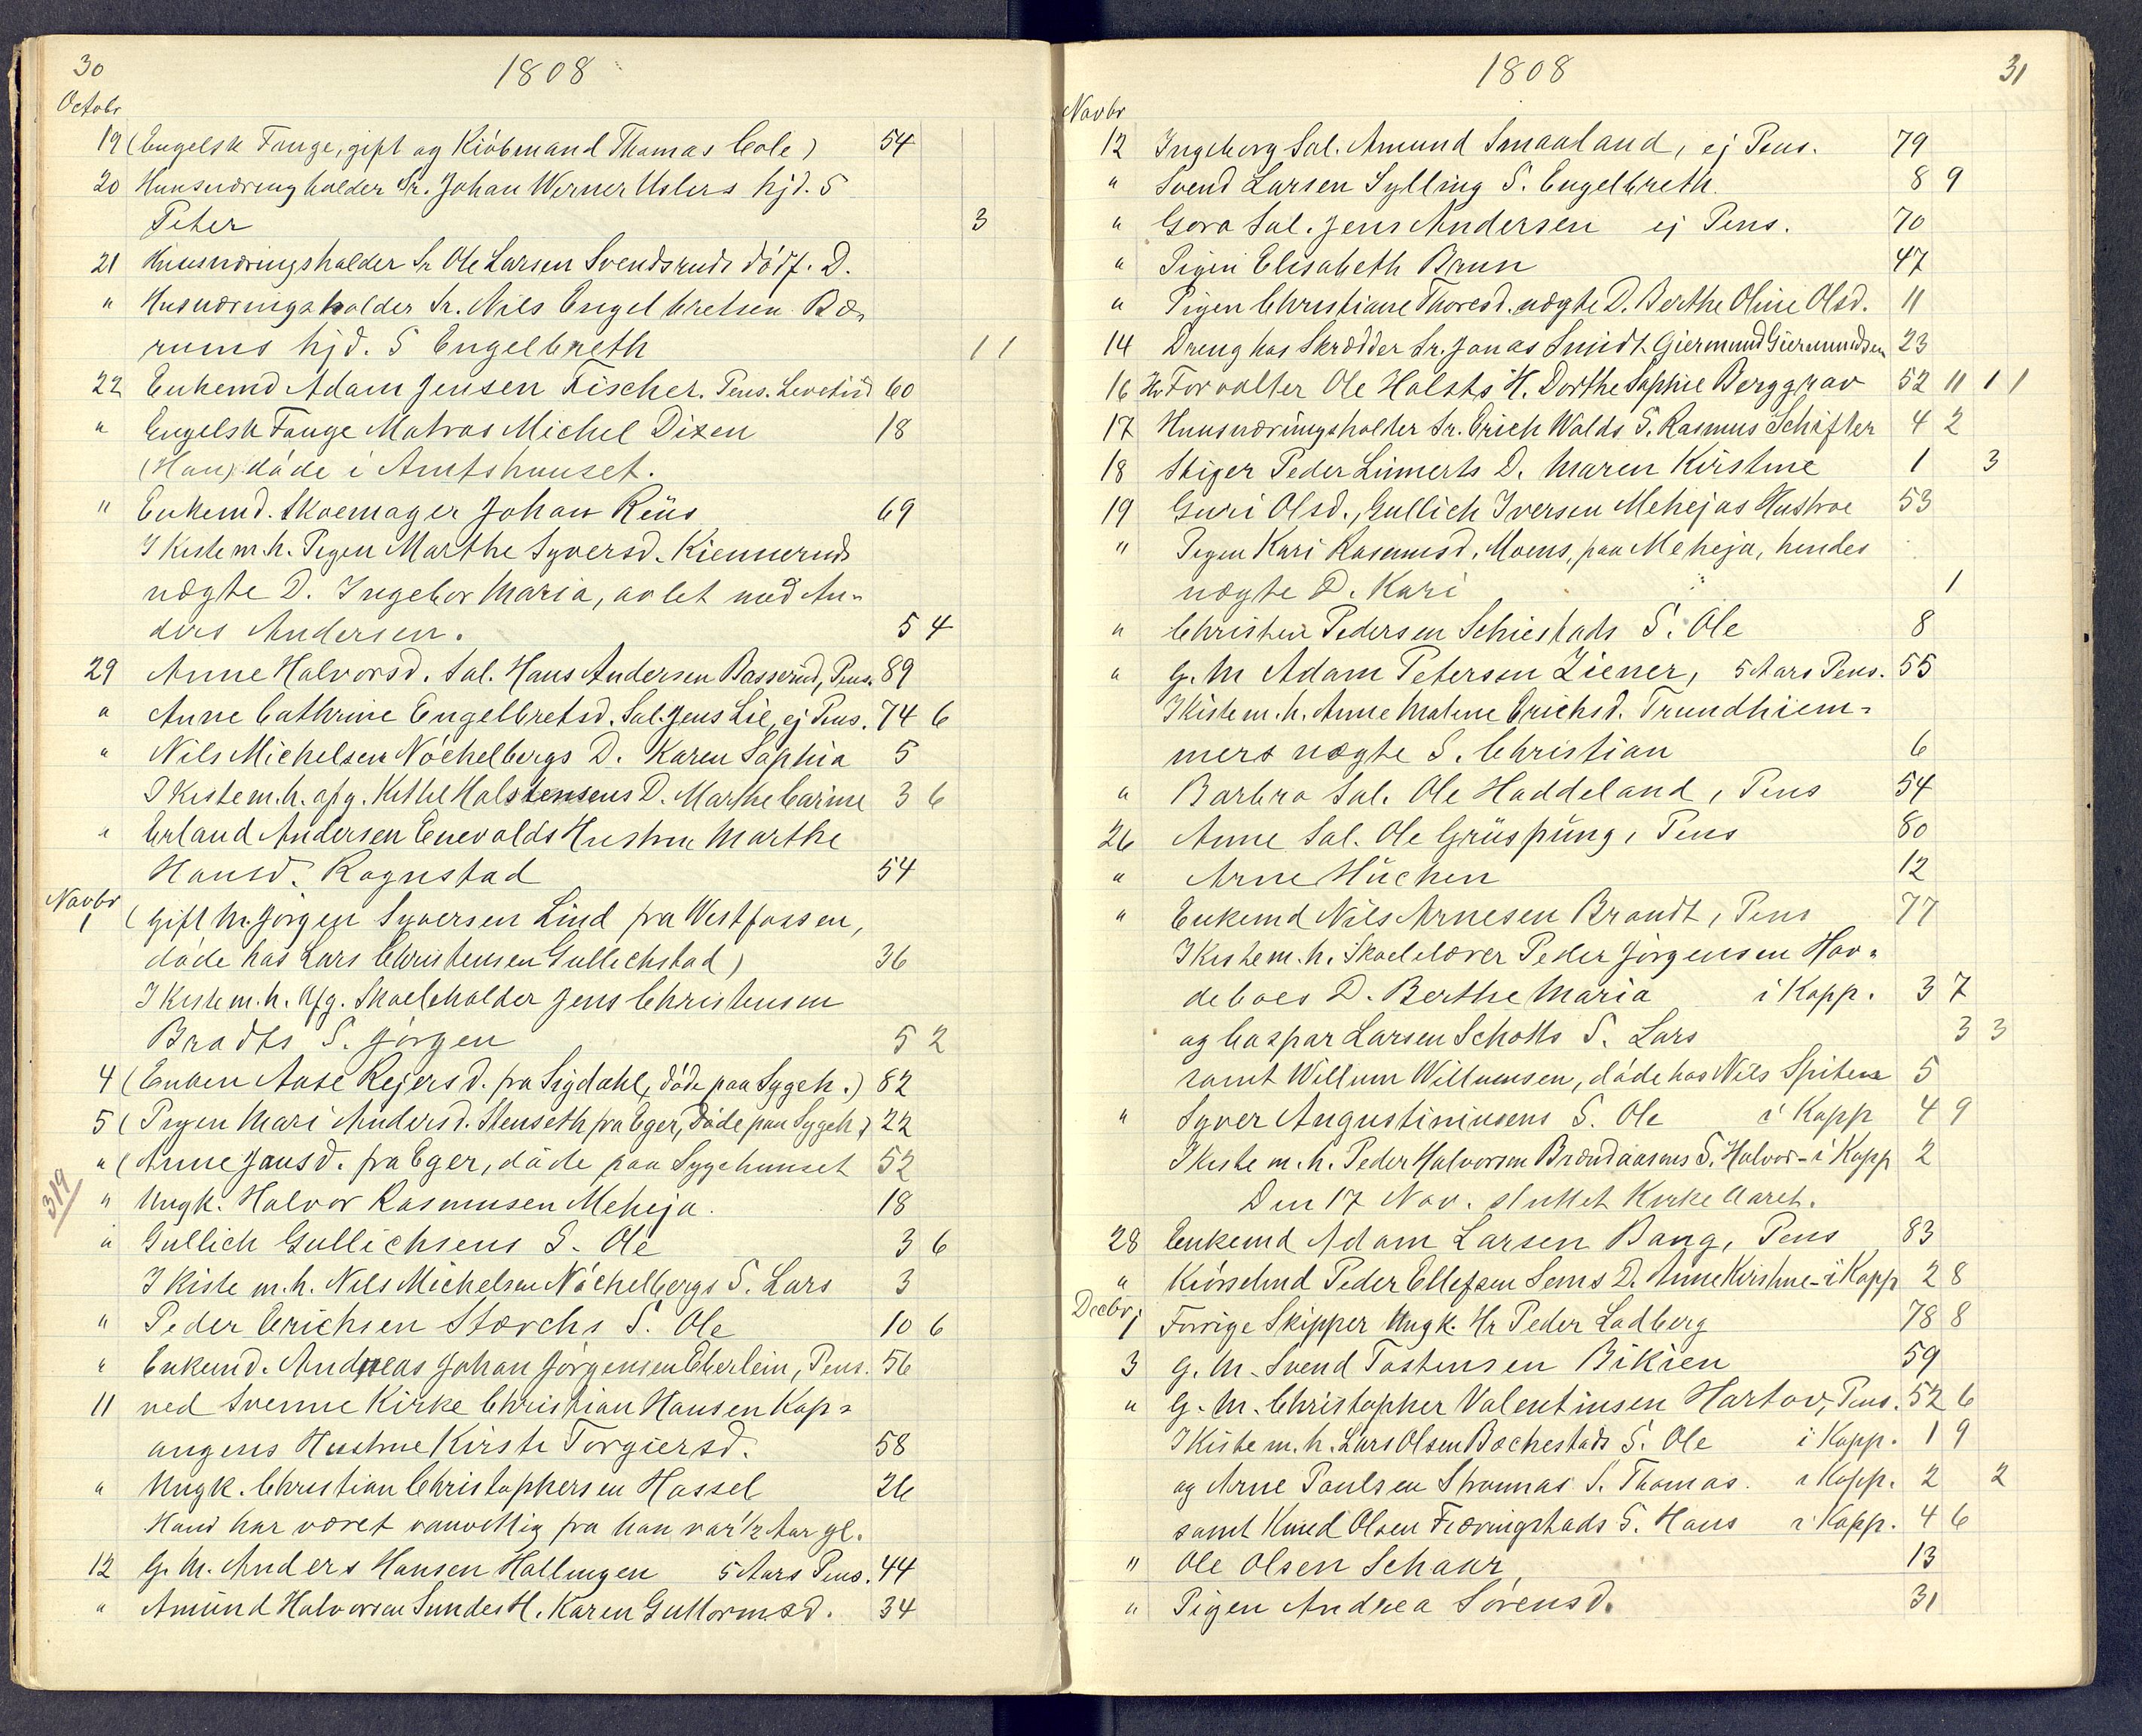 30
1808
Octobr
19 (Engelsk Fange, gift og Kiöbmand Thomas Cole) 54
20 Huusnæringholder Sr. Johan Werner Uslers hjd. S
Peter 3
21 Huusnæringsholder Sr Ole Larsen Svendsruds dödf. D.
" Husnæringsholder Sr. Nils Engelbretsen Bæ-
rums hjd. S Engelbreth 11
22 Enkemd Adam Jensen Fischer. Pens. Levetid 60
" Engelsk Fange Matros Michel Dixen 18
(Han) döde i Amtshuuset.
" Enkemd. Skoemager Johan Reus 69
I Kiste m.h. Pigen Marthe Syversd. Kiennerud
uægte D. Ingebor Maria, avlet med An-
ders Andersen. 5 4
29 Anne Halvorsd. Sal. Hans Andersen Basserud, Pens. 89
" Anne Cathrine Engelbretsd. Sal. Jens Lie, ej Pens. 74 6
" Nils Michelsen Nöchelbergs D. Karen Sophia 5
I Kiste m.h. afg. Kittel Halstensens D. Marthe Carine 3 6
" Erland Andersen Enevolds Hustrue Marthe
Hansd. Rognstad 54
Novbr
1 (Gift M. Jörgen Syversen Lind fra Westfossen,
döde hos Lars Christensen Gullichstad) 36
I Kiste m.h. Afg. Skoleholder Jens Christensen
Bradts S. Jörgen 5 2
4 (Enken Aase Rejersd. fra Sigdahl, döde paa Sygeh.) 82
5 (Pigen Mari Andersd. Stenseth fra Eger, Döde paa Sygeh.) 22
" (Anne Jansd. fra Eger, döde paa Sygehuuset 52
319
" Ungk. Halvor Rasmusen Meheja. 18
" Gullich Gullichsens S. Ole 3 6
I Kiste m.h. Nils Michelsen Nöchelbergs S. Lars 3
" Peder Erichsen Storchs S. Ole 10 6
" Enkemd. Andreas Johan Jörgensen Eberlein, Pens. 56
11 ved Svenne Kirke Christian Hansen Kop-
angens Hustrue Kirsti Torgiersd. 58
" Ungk. Christian Christophersen Hassel 26
Hand har været vanvittig fra han var 1/2 Aar gl.
12 G.M. Anders Hansen Hallingen 5 Aars Pens. 44
" Amund Halvorsen Sundes H. Karen Guttormsd. 34
1808
31
Novbr
12 Ingeborg Sal. Amund Smaaland, ej Pens. 79
" Svend Larsen Sylling S. Engelbreth. 8 9
" Gora Sal. Jens Andersen ej Pens. 70
" Pigen Elisabeth Brun 47
" Pigen Christiane Thoresd. uægte D. Berthe Oline Olsd. 11
14 Dreng hos Skrædder Sr. Jonas Smidt. Giermund Giermundsen 23
16 Hr Forvalter Ole Holsts H. Dorthe Sophie Berggrav 52 11 11
17 Huusnæringsholder Sr. Erich Walds S. Rasmus Schifter 4 2
18 Stiger Peder Linnerts D. Maren Kirstine 1 3
19 Guri Olsd., Gullich Iversen Mehejas Hustroe 53
" Pigen Kari Rasmusd. Moens, paa Meheja, hendes
uægte D. Kari 1
" Christen Pedersen Schiestads S. Ole 8
" G.M Adam Petersen Ziener, 5 Aars Pens. 55
I Kiste m.h. Anne Malene Erichsd. Trundhiem-
mers uægte S. Christian 6
" Barbra Sal. Ole Haddeland, Pens 54
26 Anne Sal. Ole Grüspüng, Pens 80
" Arne Huchen 12
" Enkemd Nils Arnesen Brandt, Pens 77
I Kiste m.h. Skoelelærer Peder Jörgensen Hov-
deboes D. Berthe Maria i Kopp. 3 7
og Caspar Larsen Schotts S. Lars 3 3
samt Willum Willumsen, döde hos Nils Spiten 5
" Syver Augustiniusens S. Ole i Kopp 4 9
I Kiste m.h. Peder Halvorsen Brændaasens S. Halvor - i Kopp 2
Den 17 Nov. sluttet Kirke Aaret.
28 Enkemd Adam Larsen Bang, Pens 83
" Kiörselmd Peder Ellefsen Sems D. Anne Kirstine - i Kopp 2 8
Decbr
1 Forrige Skipper Ungk. Hr Peder Ladberg 78 8
3 G.M. Svend Tostensen Bikien 59
" G.M. Christopher Valentinsen Hartov, Pens. 52 6
I Kiste m.h. Lars Olsen Bachestads S. Ole i Kopp. 1 9
og Arne Poulsen Strømnas S. Thomas. i Kopp. 2 2
samt Knud Olsen Fiæringstads S. Hans i Kopp. 4 6
" Ole Olsen Schaar, 13
" Pigen Andrea Sörensd. 31